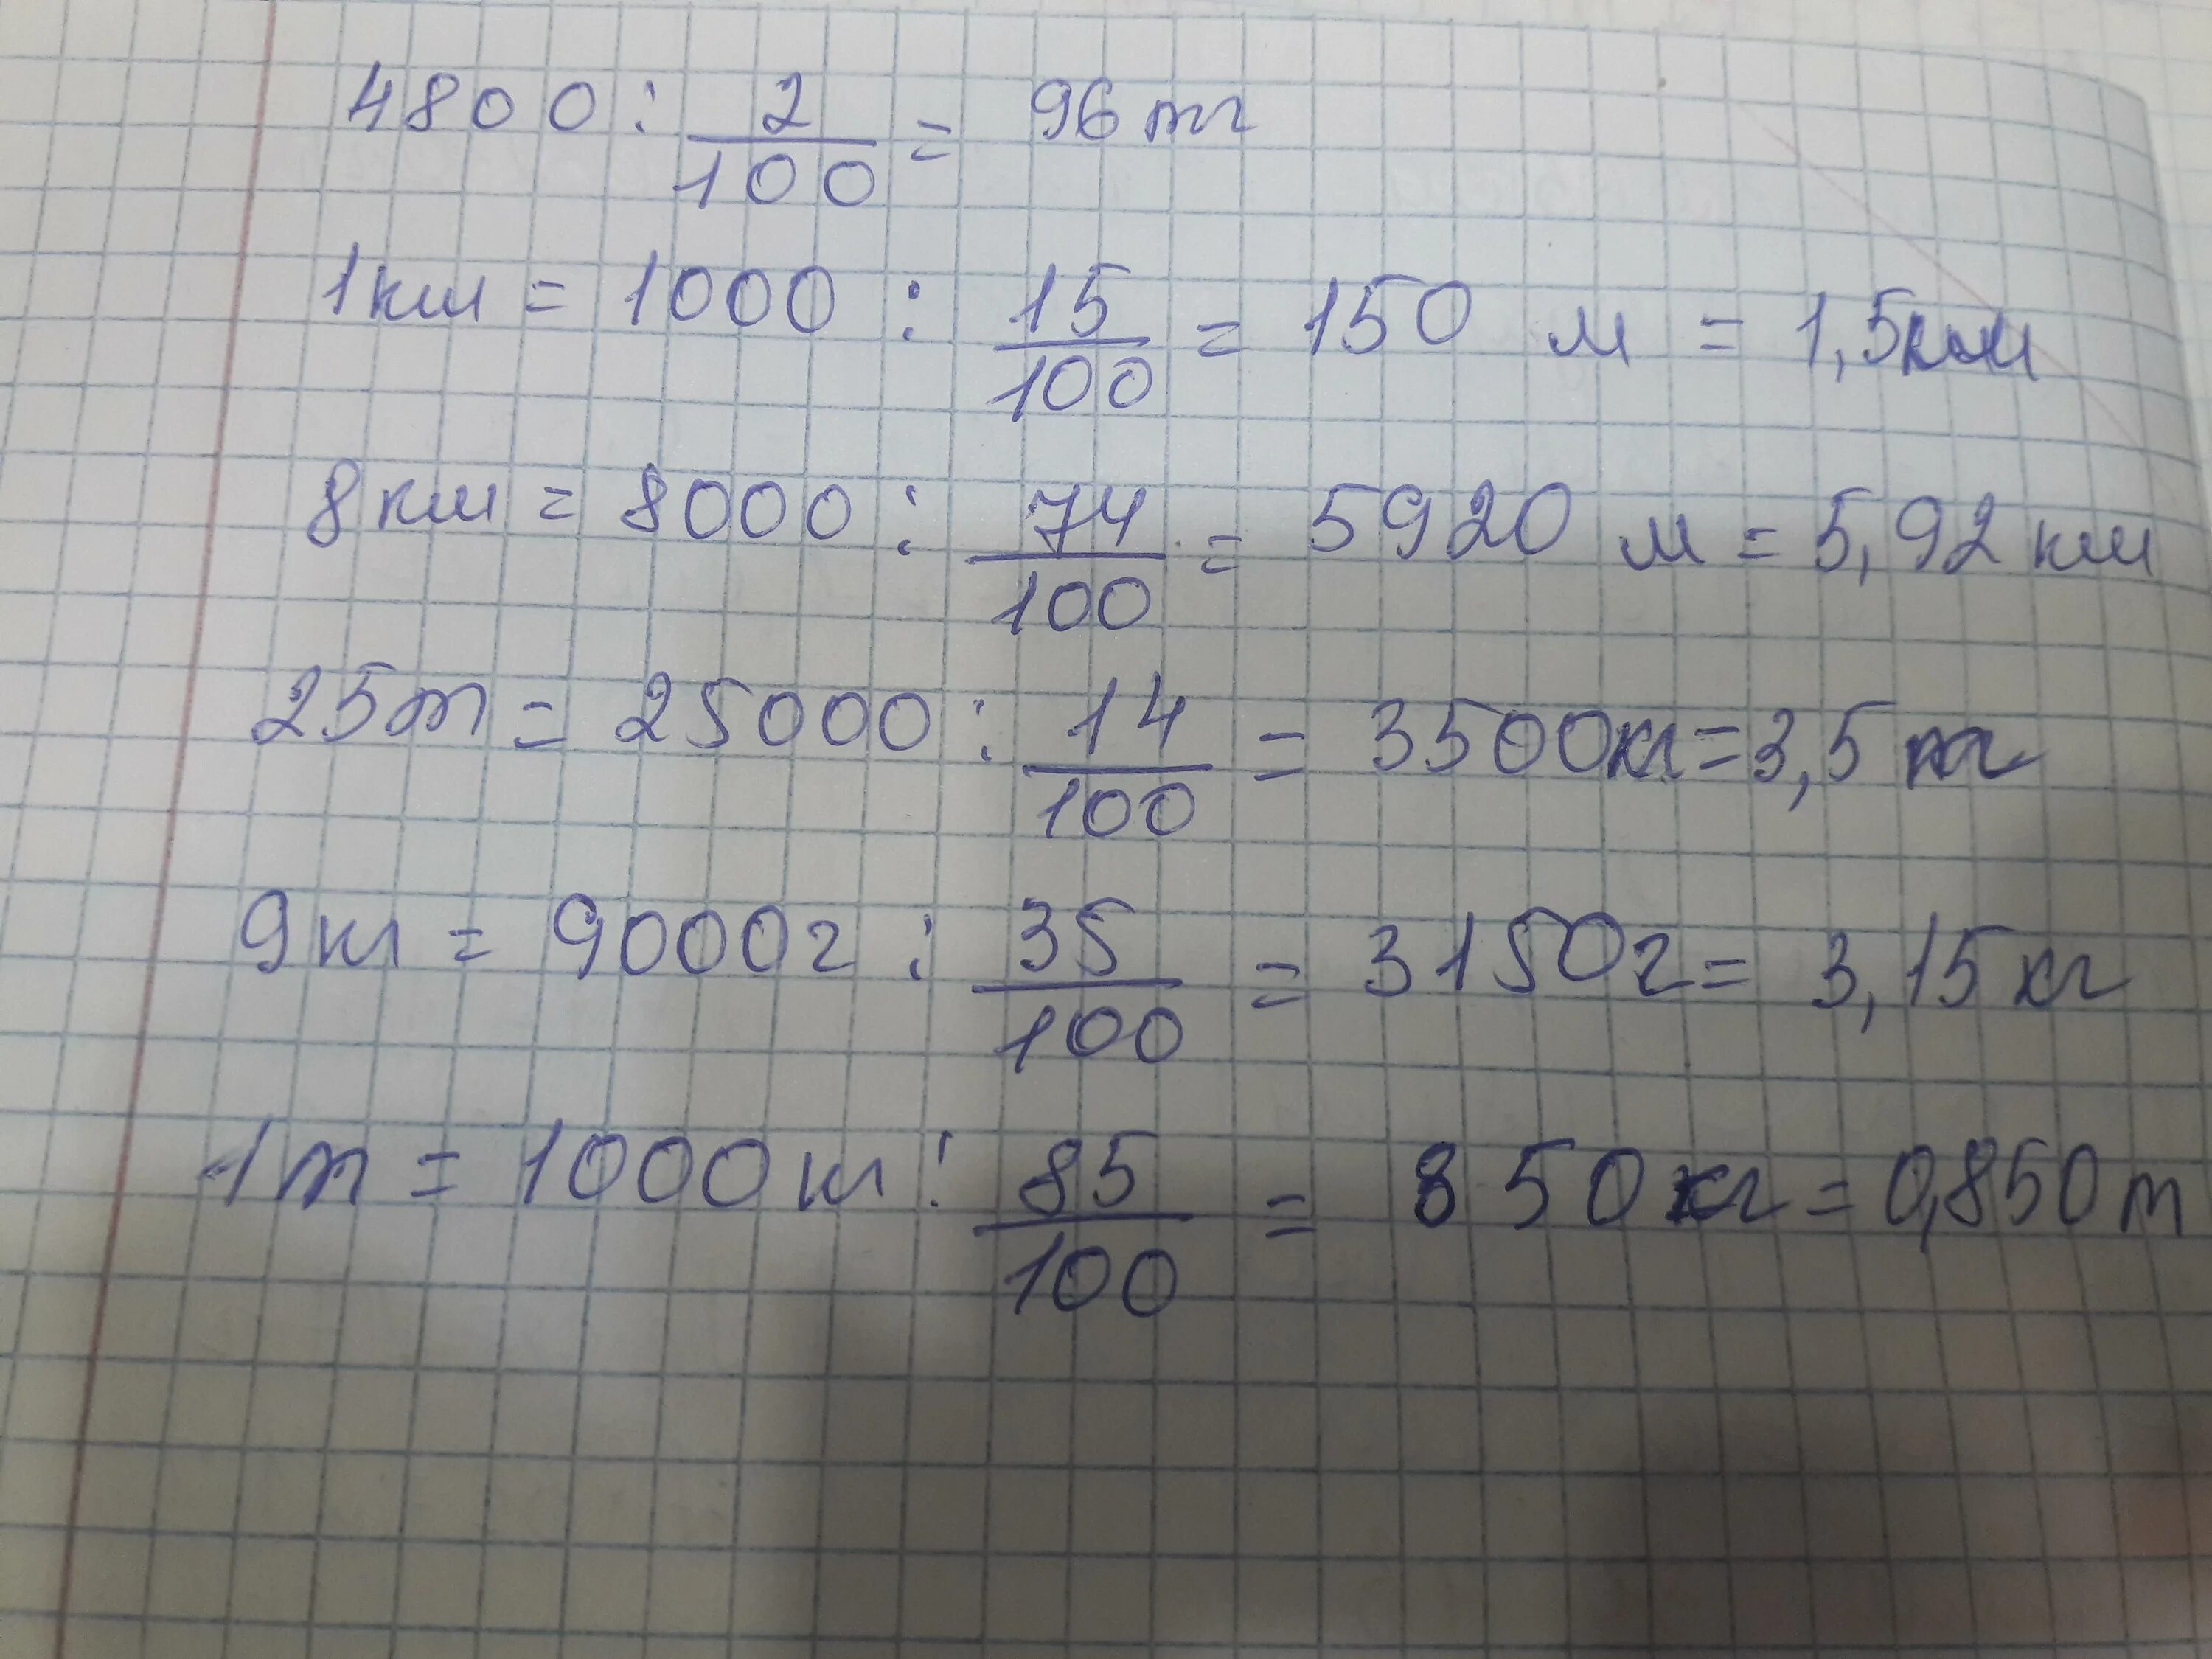 4800 : 2/100 = 96 тг
1км = 1000 : 15/100 = 150 м = 1,5км
8км = 8000 : 74/100 = 5920 м = 5,92 км
25т = 25000 : 14/100 = 3500кг = 3,5 тг
9кг = 9000г : 35/100 = 3150г = 3,15 кг
1т = 1000кг : 85/100 = 850 кг = 0,850т